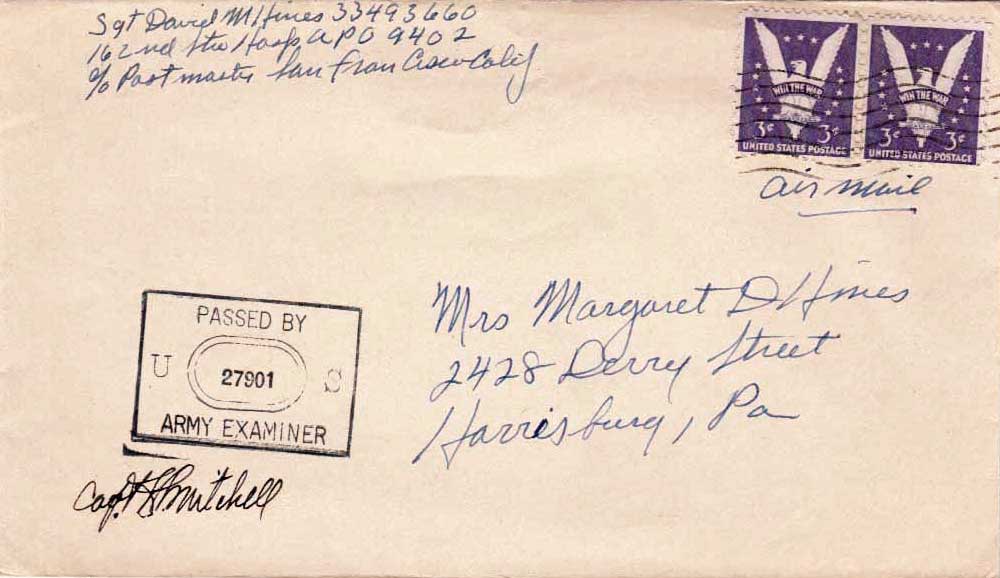 Sgt David M Hines 33493660
162nd Sta Hosp APO 9402
c/o Postmaster San Francisco Calif
WIN THE WAR
3¢ 3¢
UNITED STATES POSTAGE
WIN THE WAR
3¢ 3¢
UNITED STATES POSTAGE
air mail
Mrs Margaret D Hines
2428 Derry Street
Harrisburg, Pa
PASSED BY
U 27901 S
ARMY EXAMINER
Capt Mitchell